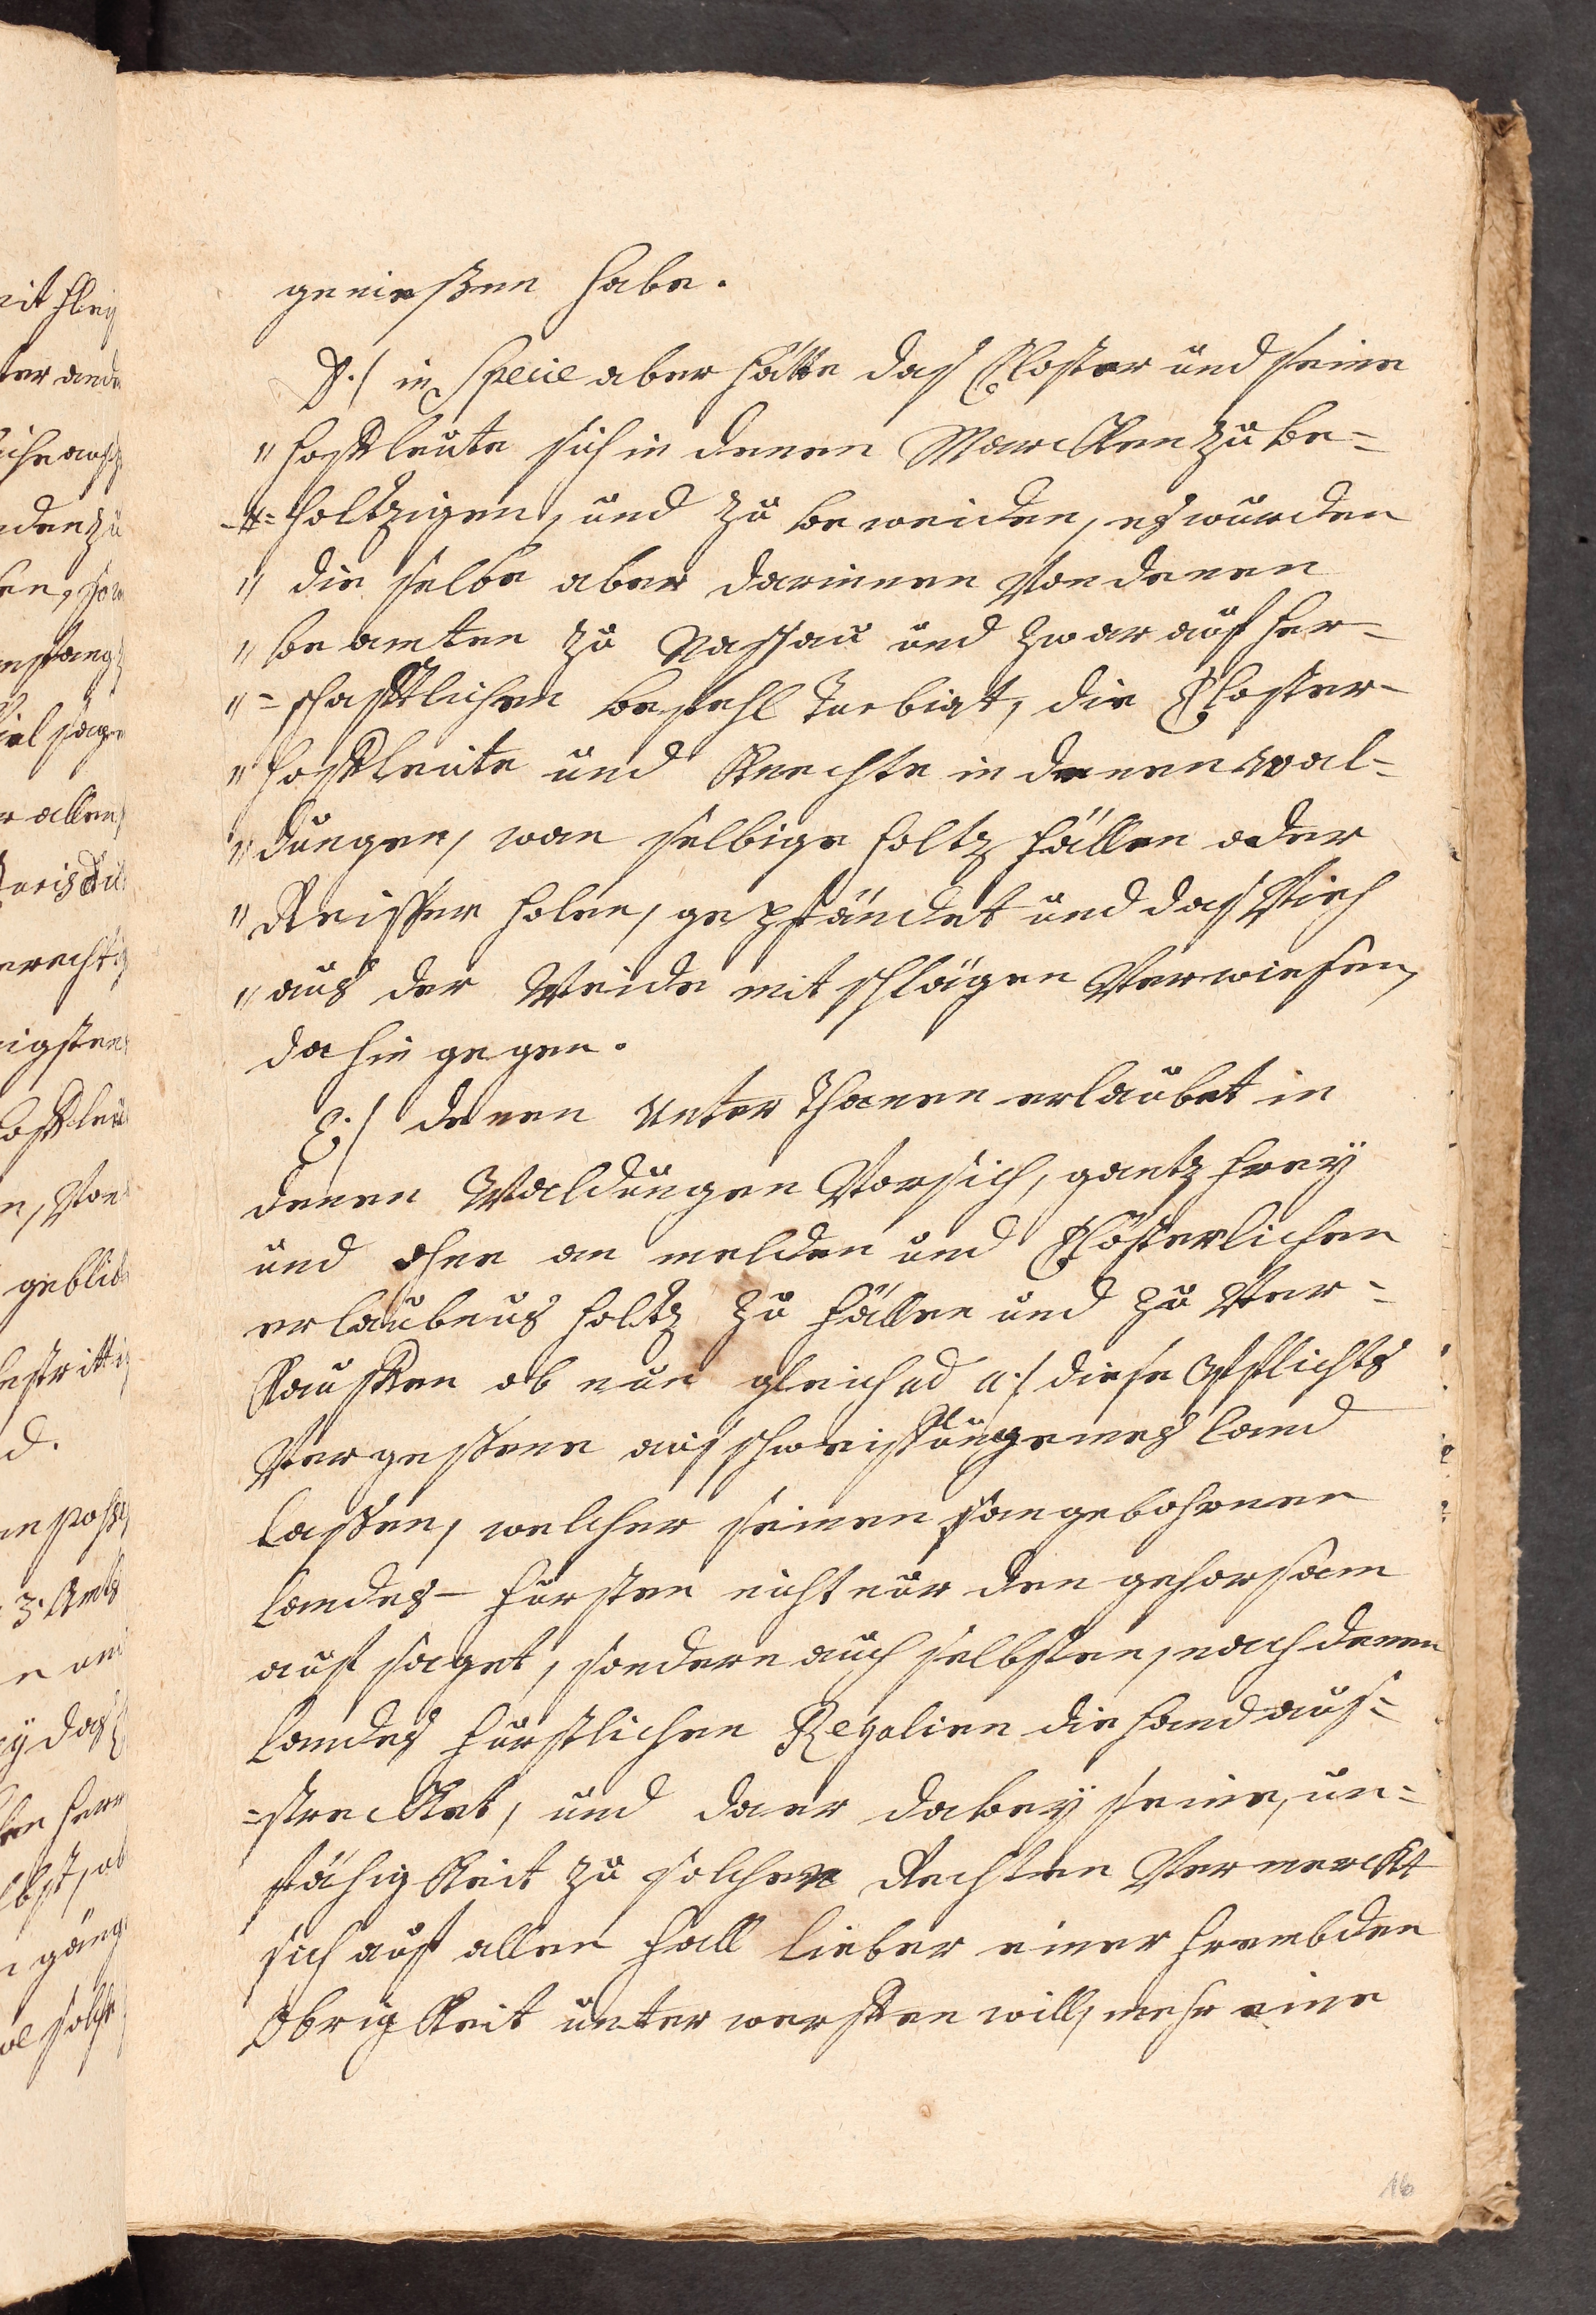 genießen habe.
D./ in Specie aber hätte das Closter und seine
" hoffleute sich in denen Marcken zu be=
-"= holtzigen, und zu beweiden, es würden
" die selbe aber darinnen von denen
" beamten zu Nassau und zwar auf her=
" = schafftlichen befehl Turbirt, die Closter-
" hoffleute und Knechte in denen wal=
" dungen, wan selbige holtz fällen oder
" Reisser holen, gepfändet und das Vieh
" aus der Weide mit schlägen Verwiesen,
dahingegen.
E./ denen Unterthanen erlaubet in
denen Waldungen Vor sich, gantz frey
und ohne an melden und Clösterlichen
erlaubnus holtz zu fällen und zu Ver=
Kauffen ob nun gleich ad a./ diese Pflichts
Vergessene ausschweiffung eines land
lassen, welcher seinen angebohrnen
landes- fürsten nicht nur den gehorsam
auf saget, sondern auch selbsten, nach denen
landes fürstlichen Regalien die hand aus=
=strecket, und da er dabey seine, un=
fähigkeit zu solchen Rechten Vermerckt
sich auf allen fall lieber einer frembden
Obrigkeit unterwerffen will, mehr eine
16